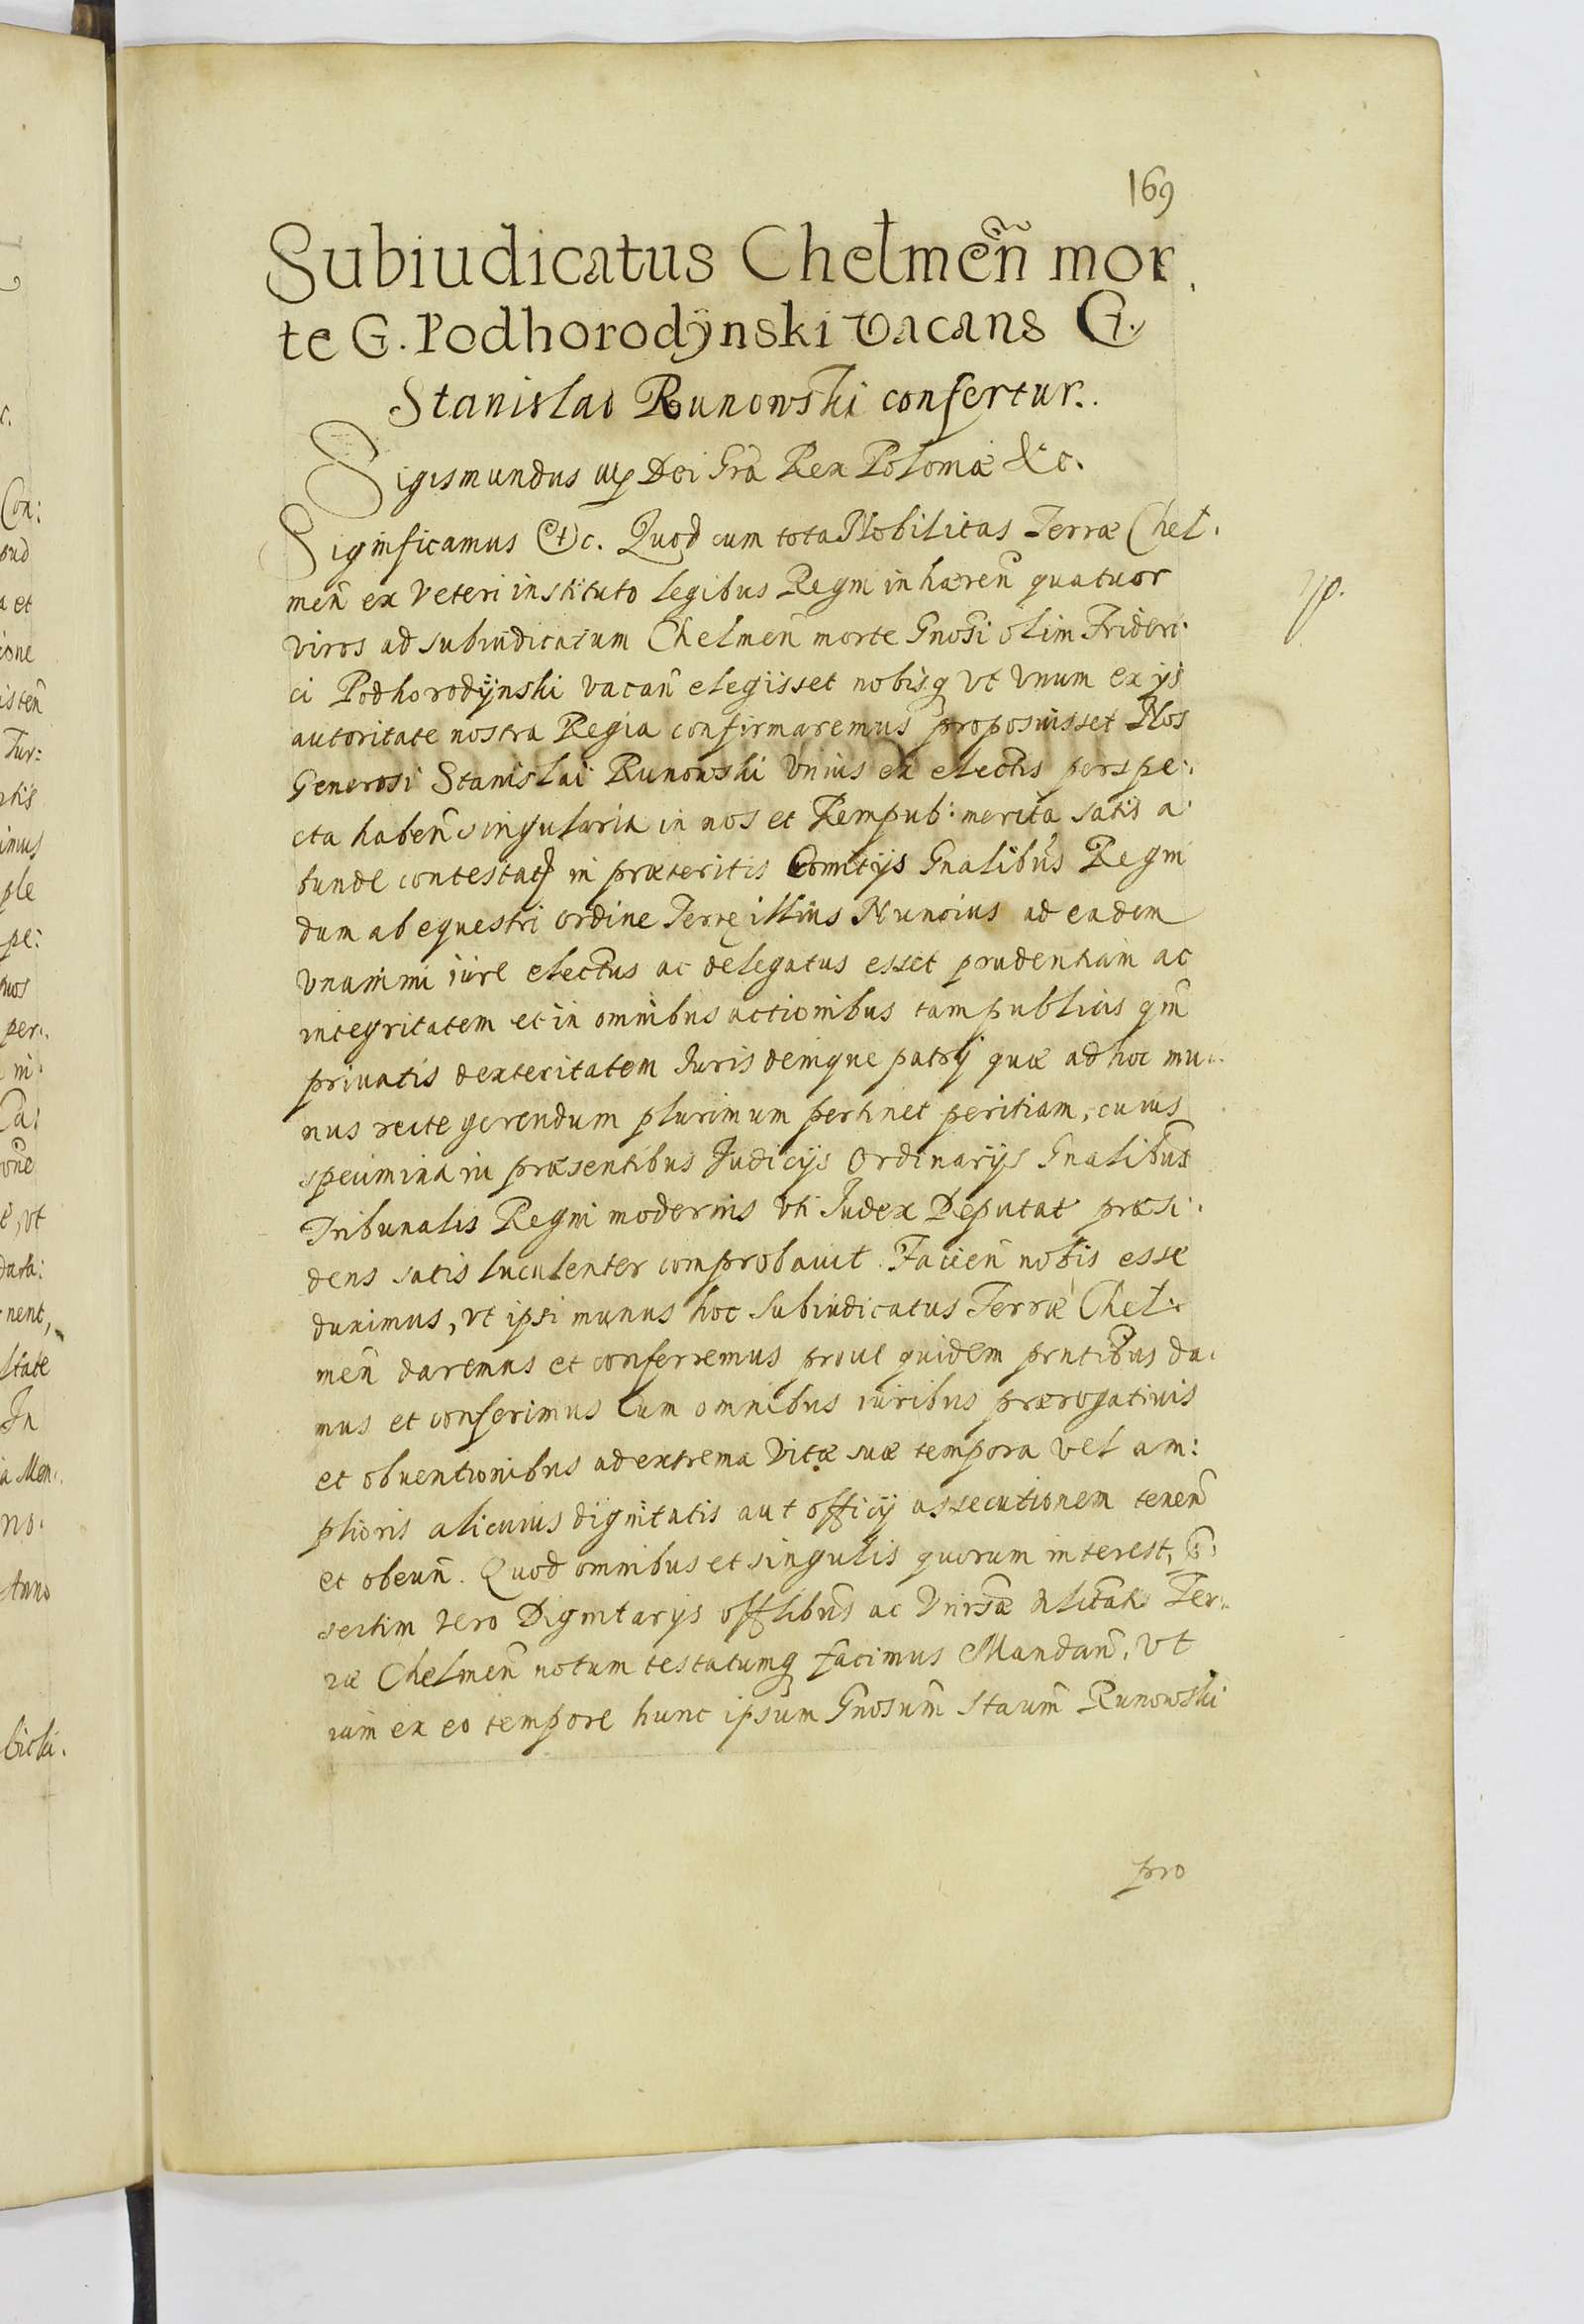 169
Subiudicatus Chełmen̄ mor
te G. Podhorodÿnski vacans G.
Stanislao Runowski confertur.
Sigismundus Dei Grā Rex Poloniæ &c.
Significamus &c. Quod cum tota Nobilitas Terræ Cheł:
men̄ ex Veteri instituto legibus Regni inhæren̄ quatuor
viros ad subiudicatum Chełmen̄ morte Gnosi olim Frideri:
ci Podhorodÿnski vacan̄ elegisset nobisq vt vnum ex ijs
autoritate nostra Regia confirmaremus proposuisset Nos
Generosi Stanislai Runowski Vnius ex electis perspe:
cta haben̄ singularia in nos et Rempub: merita satis a
bunde contestat in præteritis Comitijs Gnalibus Regni
dum ab equestri ordine Terrę illius Nuncius ad eadem
vnanimi iure electus ac delegatus esset prudentiam ac
integritatem et in omnibus actionibus tam publicis qm̄
priuatis dexteritatem Iuris denique patrij quæ ad hoc mu:
nus recte gerendum plurimum pertinet peritiam, cuius
specimina in præsentibus Iudicijs Ordinarijs Gnalibus
Tribunalis Regni modernis vti Iudex Deputat præsi:
dens satis luculenter comprobauit. Facien̄ nobis esse
duximus, vt ipsi munus hoc Subiudicatus Terræ Cheł:
men̄ daremus et conferremus prout quidem prntibus da:
mus et conferimus Cum omnibus iuribus prærogatiuis
et obuentionibus ad extrema Vitæ suæ tempora vel am:
plioris alicuius dignitatis aut officij assecutionem tenen̄
et obeun̄. Quod omnibus et singulis quorum interest,
sertim vero Dignitarijs offlibus ac Vnirsæ Nlitatis Ter:
ræ Chelmen̄ notum testatumq facimus Mandan̄, vt
iam ex eo tempore hunc ipsum Gnosum Staum Runowski
pro